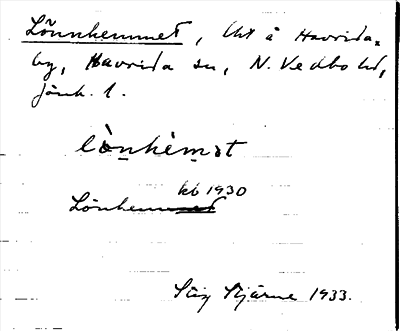 Lönnhemmet, Uxt å Haurida-
by, Haurida sn, N. Vedbo hd,
Jönk. l.
lònhèmət
kb 1930
Lönhemmet
Stig Stjärne 1933.